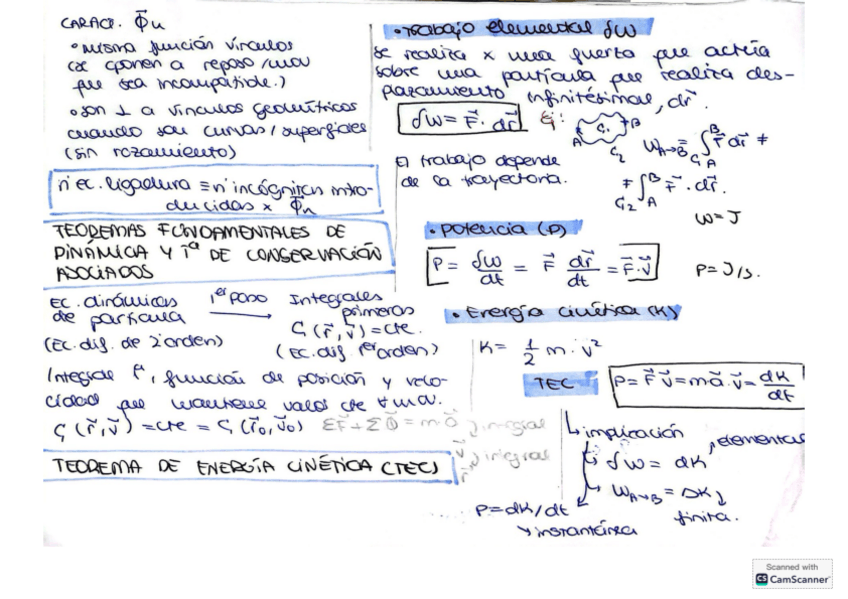 CARACT. Φ⃗u
• misma función vínculos
(se oponen a reposo/mov
que sea incompatible.)
• son ⊥ a vínculos geométricos
cuando son curvas/superficies
(sin rozamiento)
nº ec. ligadura ≡ nº incógnitas intro-
ducidas x Φ⃗u
TEOREMAS FUNDAMENTALES DE
DINÁMICA Y Tª DE CONSERVACIÓN
ASOCIADOS
Ec. dinámicas 1er paso Integrales
de partícula → primeras
G(r⃗, v⃗) = cte.
(Ec. dif. de 2º orden) (Ec. dif 1er orden)
Integral 1ª, función de posición y velo-
cidad que mantiene valor cte ∀ mov.
G(r⃗, v⃗) = cte = G(r⃗₀, v⃗₀) ΣF⃗ + ΣΦ⃗ = m a⃗ ) integral
v⃗ ) integral
r⃗
TEOREMA DE ENERGÍA CINÉTICA (TEC)
• Trabajo elemental δW
Se realiza x una fuerza que actúa
sobre una partícula que realiza des-
plazamiento infinitésimal, dr⃗.
δW = F⃗ · dr⃗ Ej: A C₁ B C₂ W A→B = ∫ C₁ A B F⃗ dr⃗ ≠
El trabajo depende
de la trayectoria. ≠ ∫ C₂ A B F⃗ · dr⃗.
W = J
• Potencia (P)
P = δW/dt = F⃗ dr⃗/dt = F⃗ · v⃗ P = J/s.
• Energía cinética (K)
K = 1/2 m · v²
TEC P = F⃗ v⃗ = m a⃗ · v⃗ = dK/dt
↳ implicación
δW = dK , elemental
↳ W A→B = ΔK
finita.
P = dK/dt
↘ instantánea
Scanned with
CS CamScanner